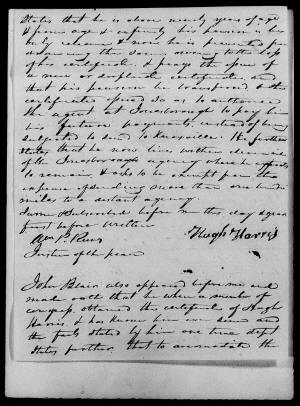 States that he is above ninety years of age
& from age & infirmity his pension is his
only reliance & now he is prevented from
drawing the same owing to the loss
of his certificate. & prays the issue of
a new or duplicate certificate and
that his pension be transferred & the
certificate so as to authorise
the agent at Jonesborough to pay him
his future payments, instead of being
subjected to send to Knoxville. He further
states that he now lives within
of the Jonesborough agency where he
to remain, & asks to be exempt from the
expense of sending more than one hundred
miles to a distant agency.
Sworn & subscribed before me this day & year
first before written
Hugh Harris
Justice of the peace
John Blair also appeared before me and
made oath that he when a member of
congress obtained the certificate of Hugh
Harris & has known him ever since and
the facts stated by him are true dept
states further that to accomodate the